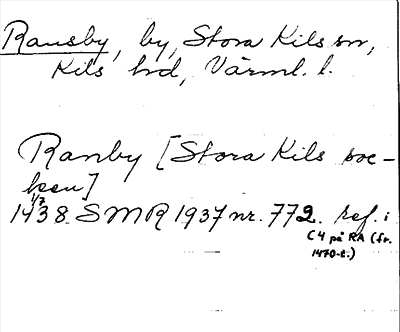 Ransby, by, Stora Kils sn,
Kils hd, Värml. l.
Ranby [Stora Kils soc-
ken]
1/7
1438. SMR 1937 nr. 772. ref. i
C4 på RA (fr.
1470-t.)